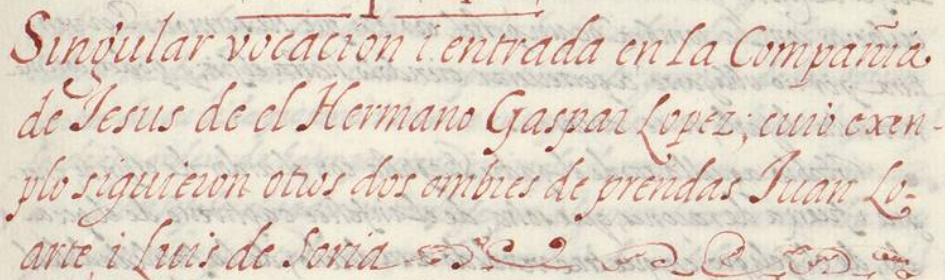 Singular vocacion i entrada en la Compañia
de Jesus de el Hermano Gaspar Lopez; cuio exen-
plo siguieron otros dos ombres de prendas Juan Lo-
arte, i Luis de Soria